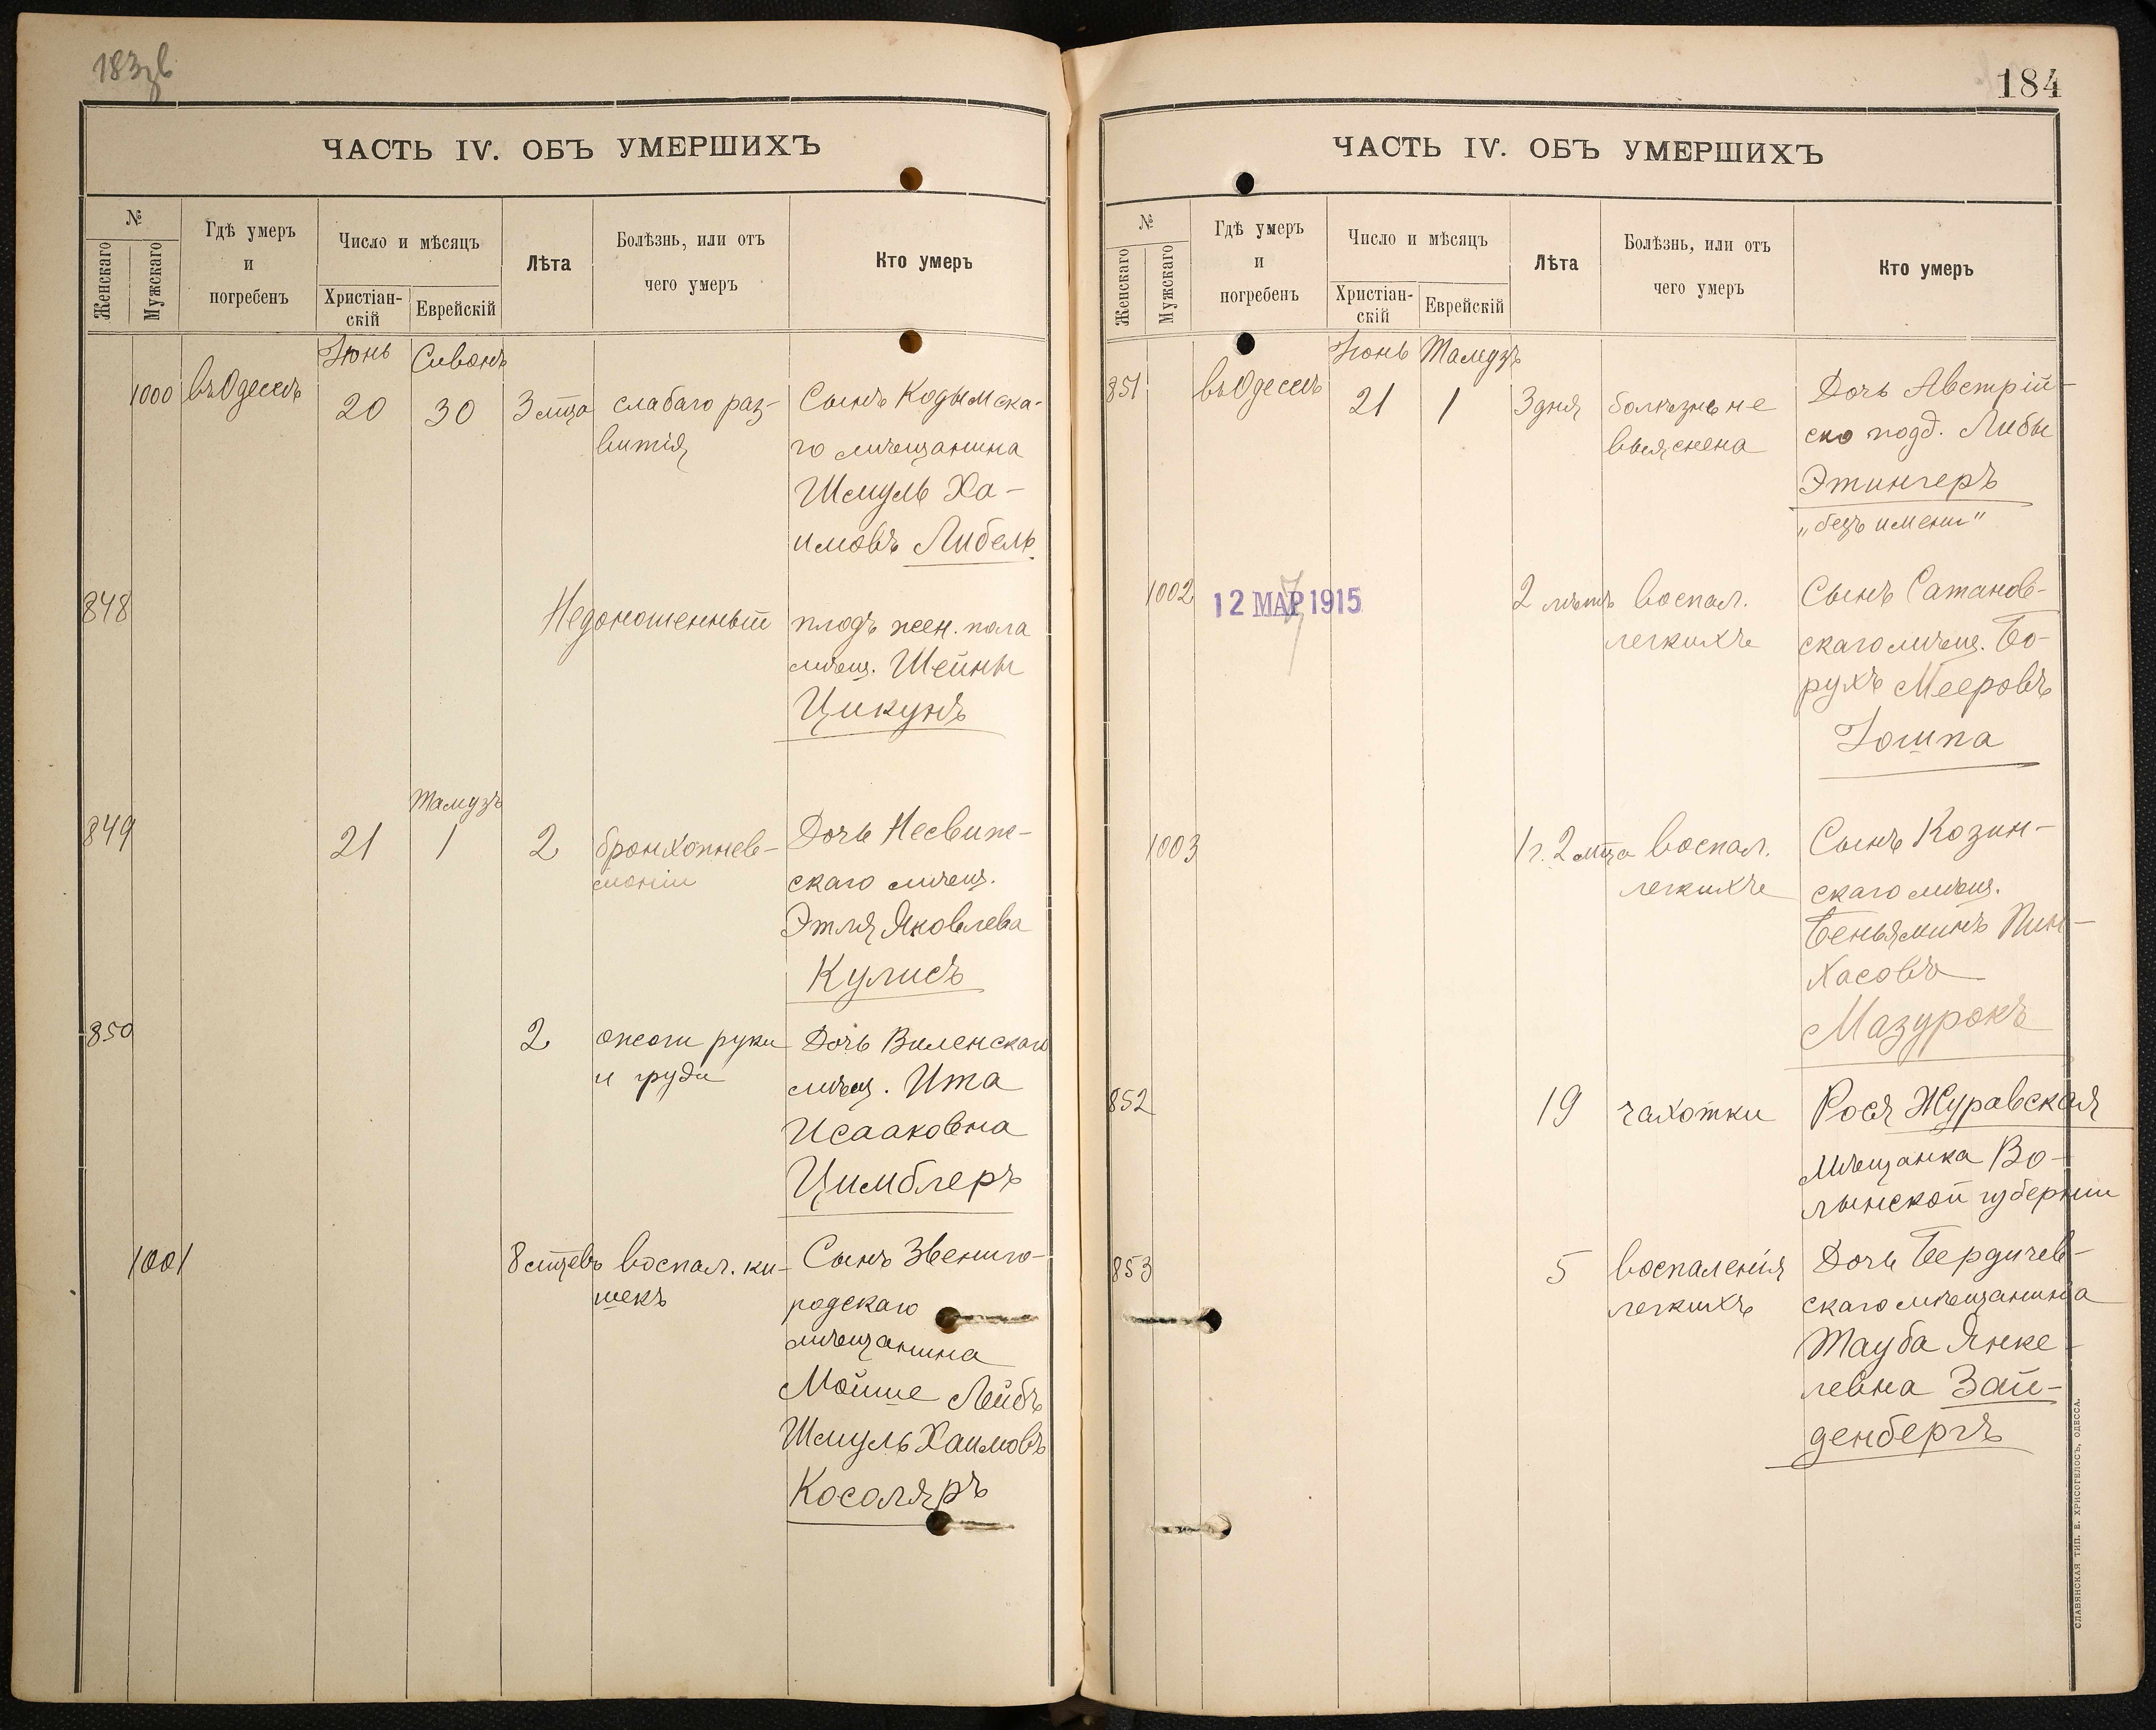 183 об
ЧАСТЬ IV. ОБЪ УМЕРШИХЪ
№
Женскаго
Мужскаго
Гдѣ умеръ
и
погребенъ
Число и мѣсяцъ
Христіан-
скій
Еврейскій
Лѣта
Болѣзнь, или отъ
чего умеръ
Кто умеръ
Іюнь Сиванъ
1000 въ Одессѣ 20 30 3 мѣца слабаго раз- Сынъ Кодымска-
витія го мѣщанина
Шмуль Ха-
имовъ Либель
848 Недоношенный плодъ жен. пола
мѣщ. Шейны
Цикунъ
Тамузъ
849 21 1 2 бронхопнев- Дочь Несвиж-
моніи скаго мѣщ.
Этля Яковлева
Кулисъ
850 2 ожоги руки Дочь Виленскаго
и груди мѣщ. Ита
Исааковна
Цимблеръ
1001 8 мѣцевъ воспал. ки- Сынъ Звениго-
шекъ родскаго
мѣщанина
Мойше Лейбъ
Шмуль Хаимовъ
Косоляръ
184
ЧАСТЬ IV. ОБЪ УМЕРШИХЪ
№
Женскаго
Мужскаго
Гдѣ умеръ
и
погребенъ
Число и мѣсяцъ
Христіан-
скій
Еврейскій
Лѣта
Болѣзнь, или отъ
чего умеръ
Кто умеръ
Іюнь Тамузъ
851 въ Одессѣ 21 1 3 дня болѣзнь не Дочь Австрій-
выяснена ско подд. Либы
Этингеръ
„безъ имени"
1002 12 МАР 1915 2 лѣтъ воспал. Сынъ Сатанов-
легкихъ скаго мѣщ. Бо-
рухъ Мееровъ
Іошпа
1003 1 г. 2 мѣца воспал. Сынъ Козин-
легкихъ скаго мѣщ.
Беньяминъ Пин-
хасовъ
Мазурокъ
852 19 чахотки Рося Журавская
Мѣщанка Во-
лынской губерніи
853 5 воспаленія Дочь Бердичев-
легкихъ скаго мѣщанина
Тауба Янке-
левна Зай-
денбергъ
СЛАВЯНСКАЯ ТИП. Е. ХРИСОГЕЛОСЪ, ОДЕССА.